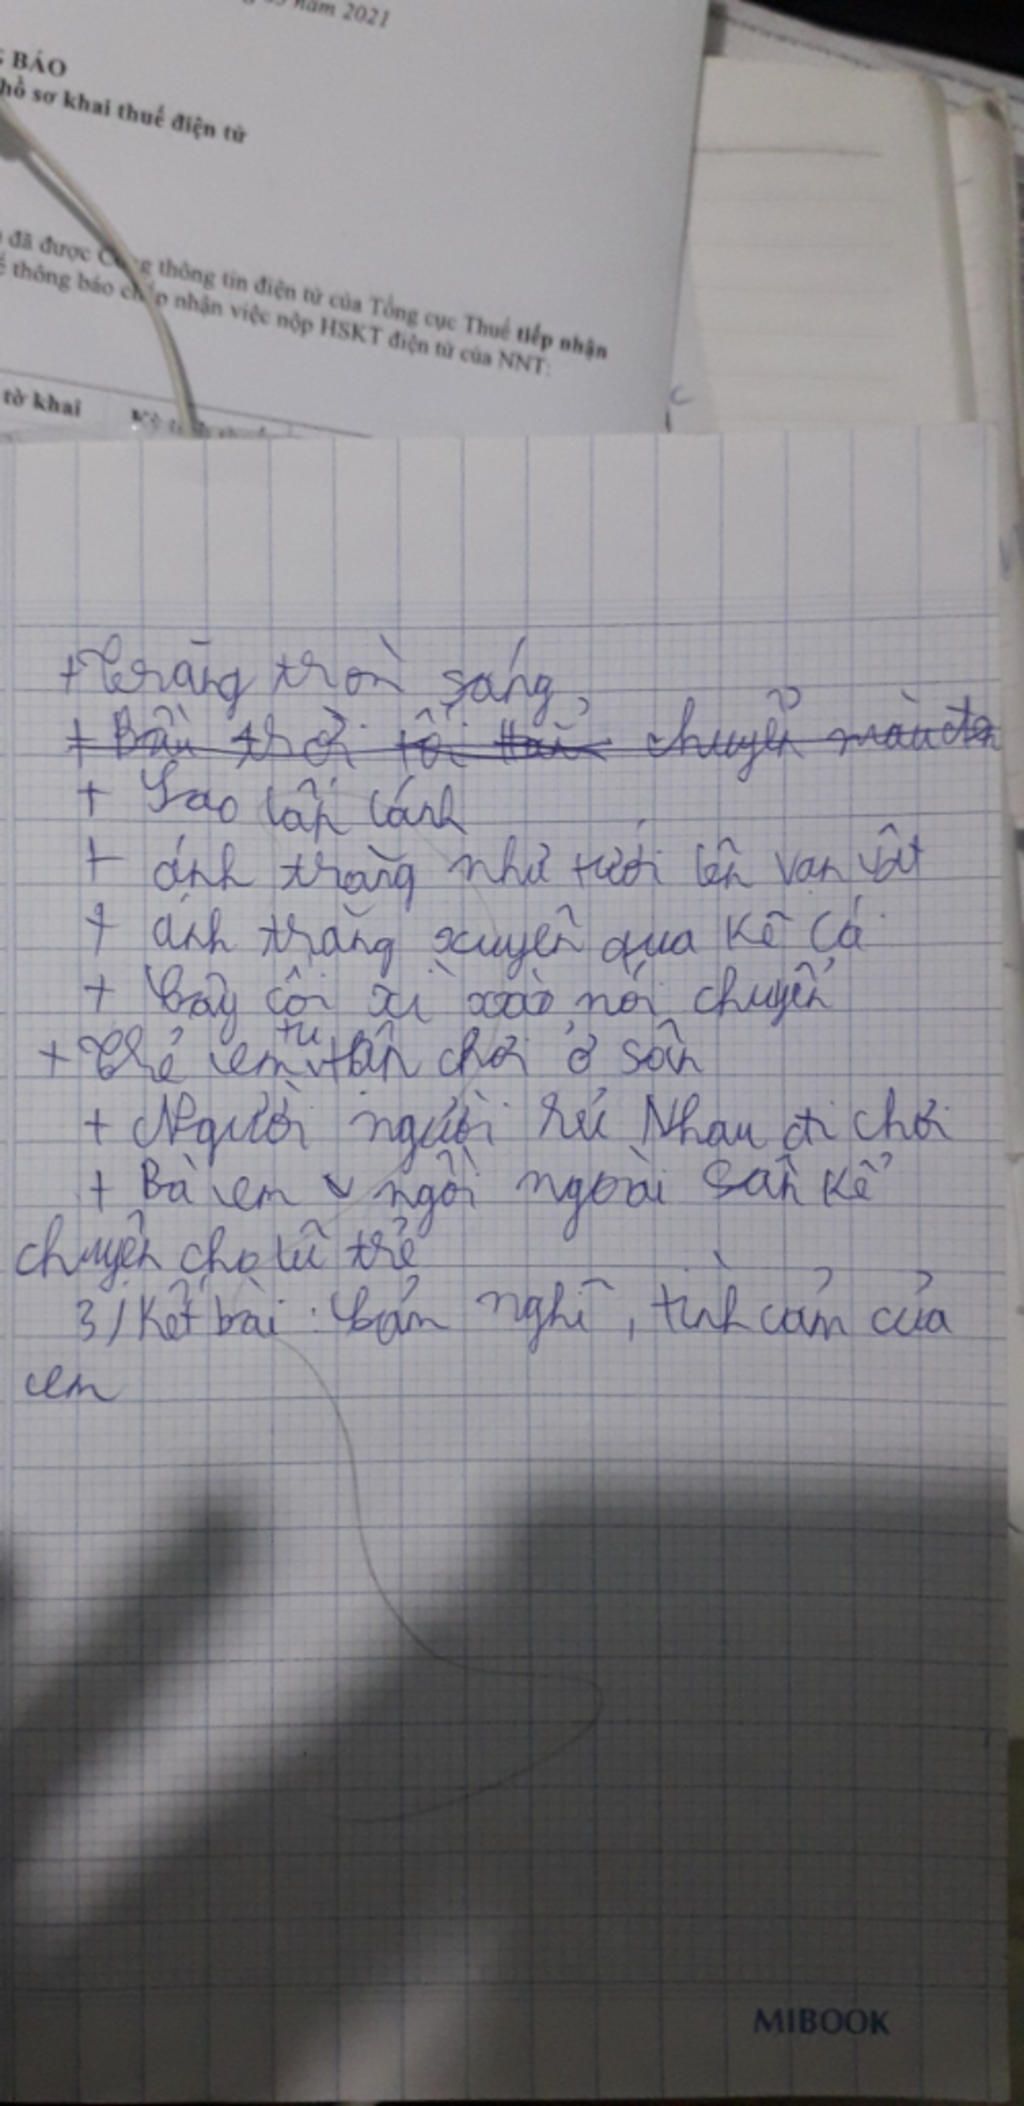 năm 2021
BÁO
hồ sơ khai thuế điện tử
đã được Cổng thông tin điện tử của Tổng cục Thuế tiếp nhận
thông báo chấp nhận việc nộp HSKT điện tử của NNT:
tờ khai
+ Trăng tròn sáng
+ Bầu trời tối chuyển màu đen
+ Sao lấp lánh
+ ánh trăng như tưới lên vạn vật
+ ánh trăng xuyên qua kẽ lá
+ Cây cối xì xào nói chuyện
+ Trẻ em tụ tập chơi ở sân
+ Người người rủ Nhau đi chơi
+ Bà em ngồi ngoài sân kể
chuyện cho lũ trẻ
3) Kết bài: nghĩ, tình cảm của
em
MIBOOK